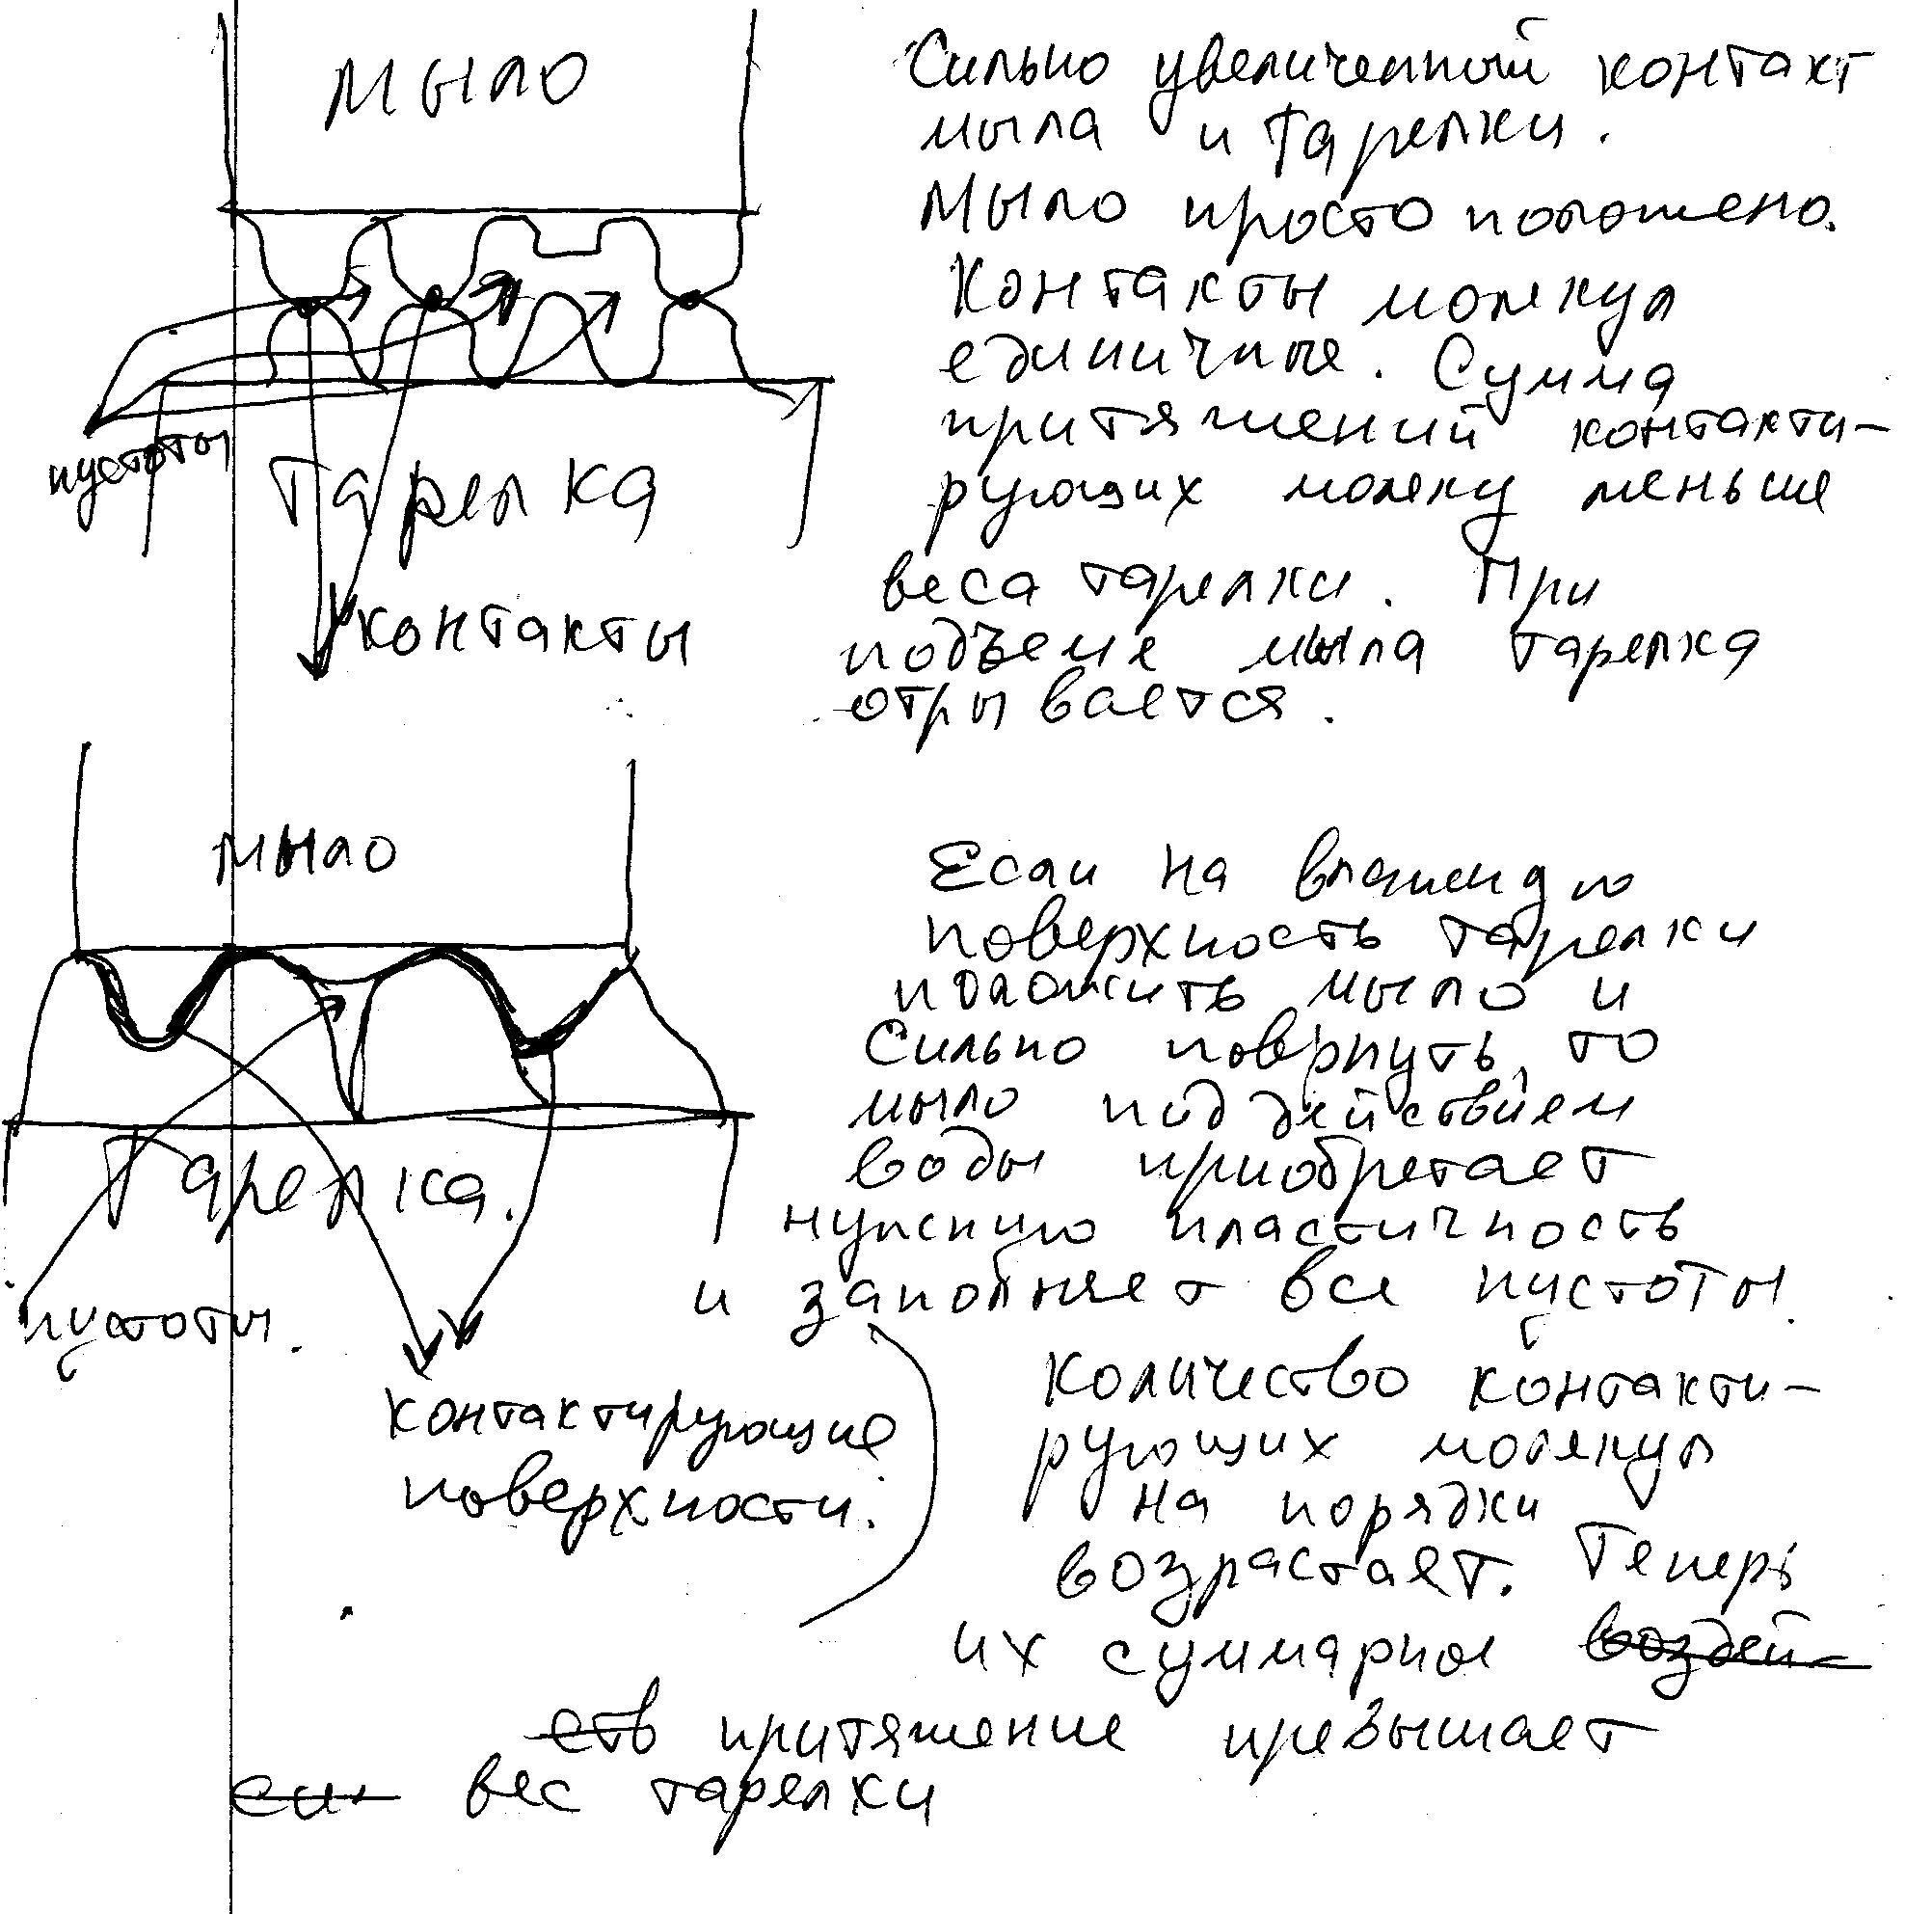 мыло
Сильно увеличенный контакт
мыла и тарелки.
Мыло просто положено.
Контакты молекул
единичные. Сумма
притяжений контакти-
рующих молеку меньше
веса тарелки. При
подъеме мыла тарелка
отрывается.
пустоты
Тарелка
контакты
мыло
Если на влажную
поверхность тарелки
положить мыло и
сильно повернуть, то
мыло под действием
воды приобретает
нужную пластичность
и заполняет все пустоты.
Тарелка.
пустоты.
контактирующие
поверхности.
Количество контакти-
рующих молекул
на порядки
возрастает. Теперь
их суммарное воздей-
ств притяжение превышает
вес тарелки